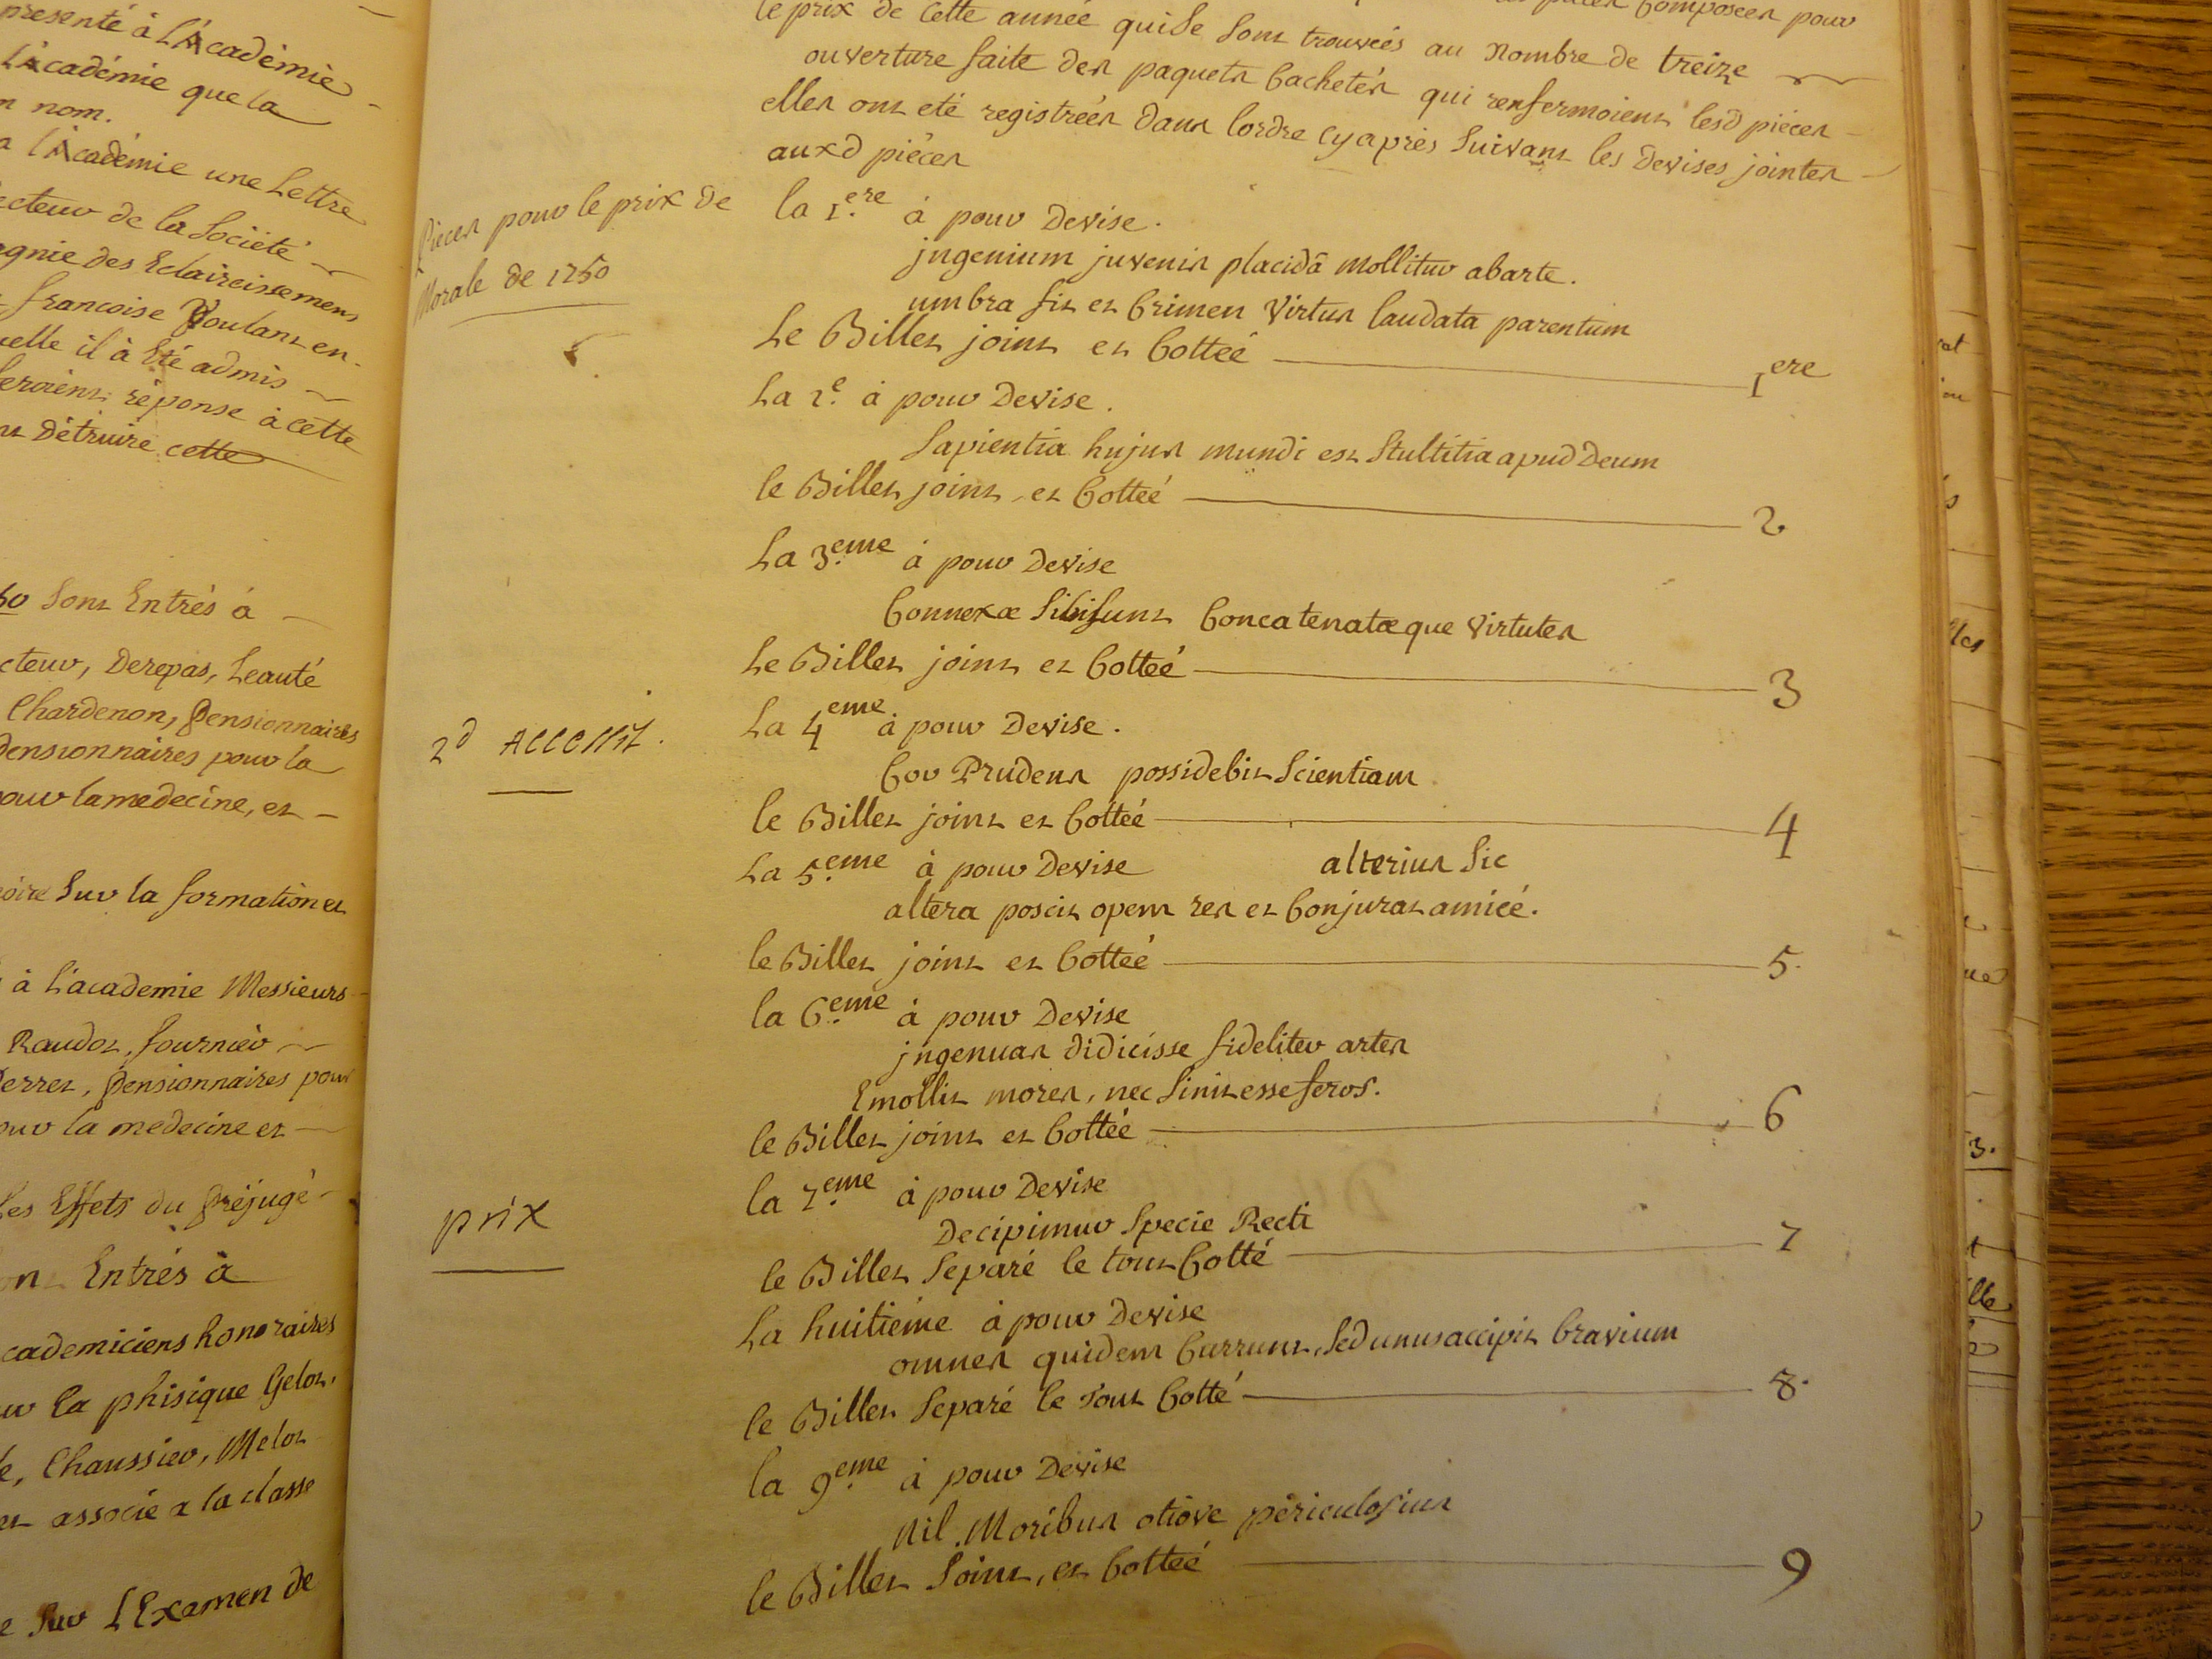 presenté à L'Académie
l'Académie que la
nom.
a l'Académie une Lettre
de la Société
des Eclaircissemens
françoise Voulant en
il à Eté admis
réponse à cette
Détruire cette
Sont Entrés à
Derepas, Leauté
Chardenon, Pensionnaires
Pensionnaires pour la
pour la medecine, et
Sur la formation et
à L'academie Messieurs
Raudot, fournier
Pensionnaires pour
pour la medecine et
Les Effets du Préjugé
Entrés à
academiciens honoraires
la phisique Gelot,
Chaussier, Melot
associé a la classe
Sur L'Examen de
composées pour
le prix de cette année qui se sont trouvées au nombre de treize
ouverture faite des paquets cachetés qui renfermoient lesd pièces
elles ont eté registrées dans lordre cy après suivant les Devises jointes
auxd pièces
Pieces pour le prix de
Morale de 1750
la 1.ere à pour Devise.
jngenium juvenis placidâ mollitur abarte.
umbra fit et crimen virtus laudata parentum
Le Billet joint et cotteé 1ere
La 2.e à pour Devise.
Sapientia hujus mundi est Stultitia apud Deum
le Billet joint, et cotteé 2
La 3.eme à pour Devise
Connexæ Sibi sunt Concatenatæque virtutes
Le Billet joint et cotteé 3
2d Accessit.
La 4eme à pour Devise.
Cor Prudens possidebit Scientiam
le Billet joint et cotteé 4
La 5.eme à pour Devise alterius Sic
altera poscit opem res et conjurat amicé.
le Billet joint et cotteé 5.
la 6.eme à pour Devise
jngenuas didicisse fideliter artes
Emollit mores, nec Sinit esse feros.
le Billet joint et cotteé 6
prix
la 7.eme à pour Devise
Decipimur Specie Recti
le Billet Separé le tout Cotté 7
La huitiéme à pour Devise
omnes quidem Currunt, Sed unus accipit bravium
le Billet Separé le tout Cotté 8.
la 9.eme à pour Devise
Nil Moribus otiove périculosius
le Billet Joint, et Cotteé 9